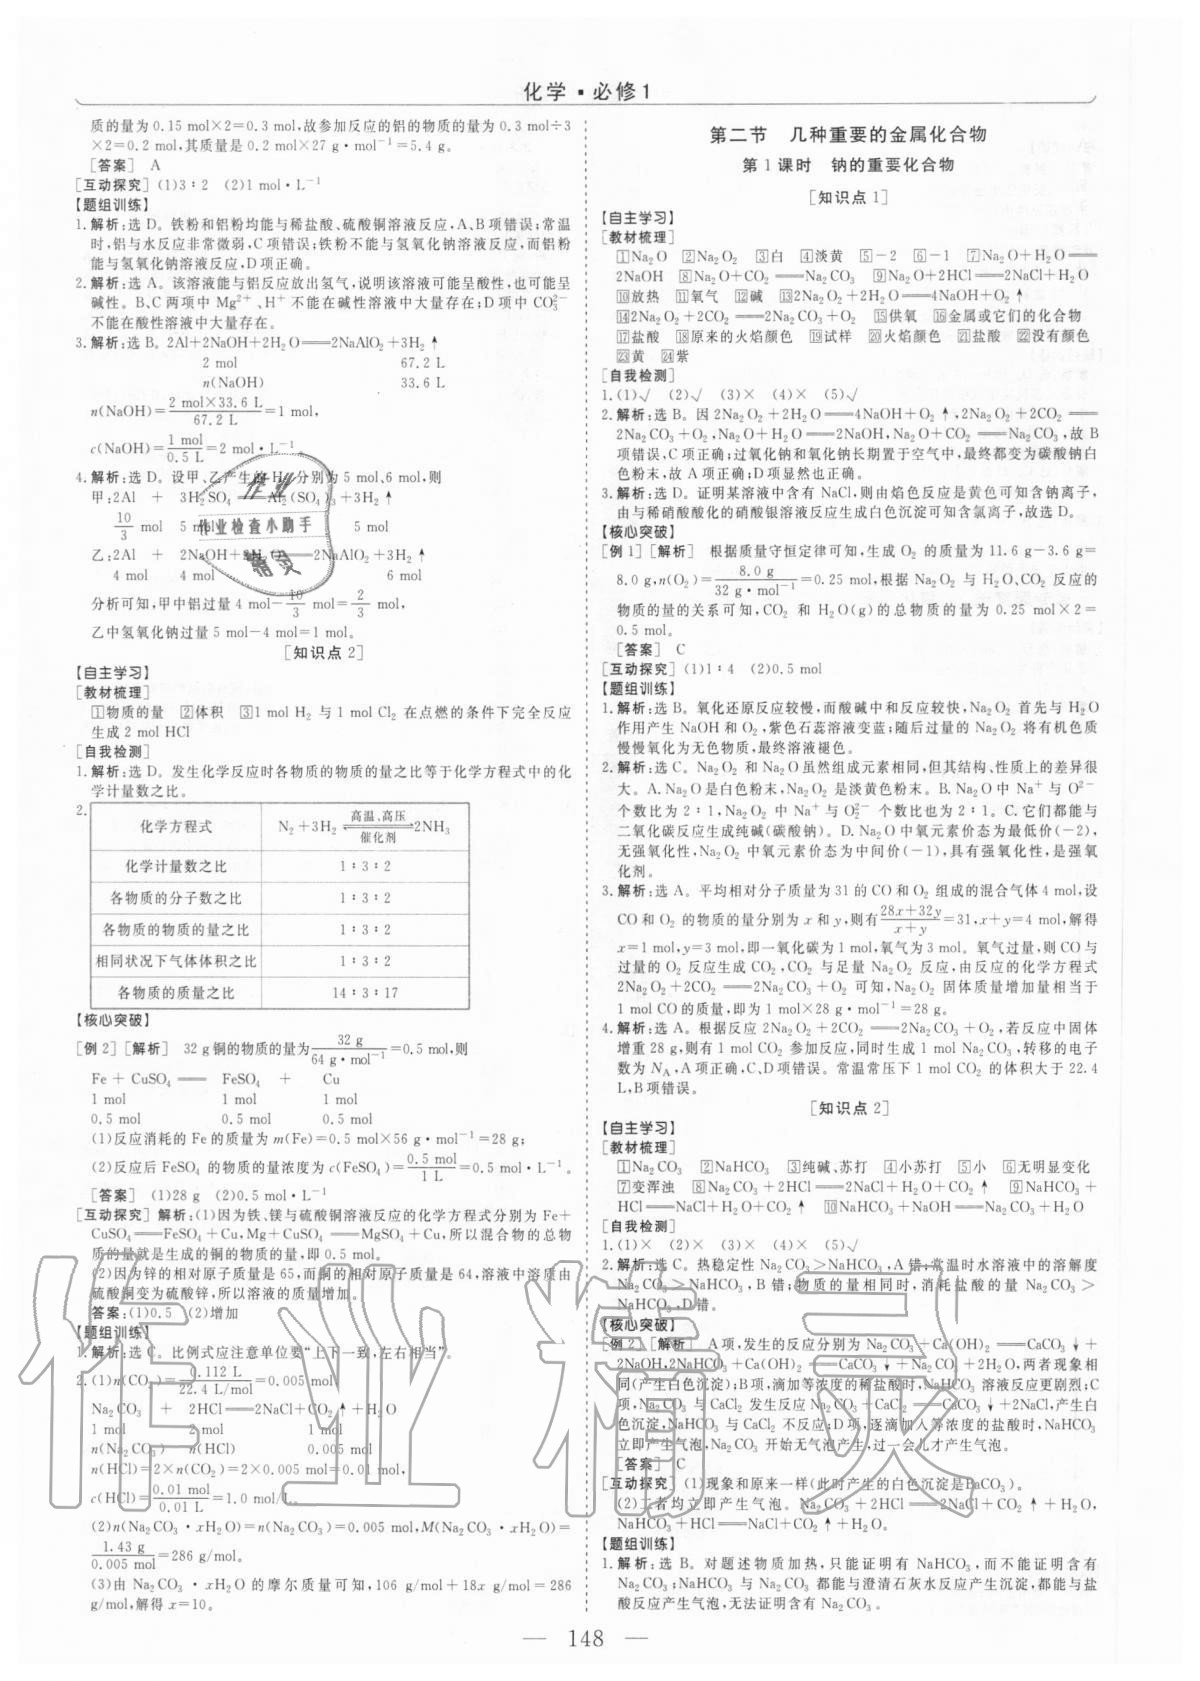 化学·必修1
质的量为0.15 mol×2=0.3 mol,故参加反应的铝的物质的量为0.3 mol÷3
×2=0.2 mol,其质量是0.2 mol×27 g·mol⁻¹=5.4 g。
[答案] A
[互动探究] (1)3∶2 (2)1 mol·L⁻¹
【题组训练】
1.解析:选D。铁粉和铝粉均能与稀盐酸、硫酸铜溶液反应,A、B项错误;常温
时,铝与水反应非常微弱,C项错误;铁粉不能与氢氧化钠溶液反应,而铝粉
能与氢氧化钠溶液反应,D项正确。
2.解析:选A。该溶液能与铝反应放出氢气,说明该溶液可能呈酸性,也可能呈
碱性。B、C两项中Mg²⁺、H⁺不能在碱性溶液中大量存在;D项中CO₃²⁻
不能在酸性溶液中大量存在。
3.解析:选B。2Al+2NaOH+2H₂O══2NaAlO₂+3H₂↑
2 mol 67.2 L
n(NaOH) 33.6 L
n(NaOH)=2 mol×33.6 L/67.2 L=1 mol,
c(NaOH)=1 mol/0.5 L=2 mol·L⁻¹。
4.解析:选D。设甲、乙产生的H₂分别为5 mol、6 mol,则
甲:2Al + 3H₂SO₄══Al₂(SO₄)₃+3H₂↑
10/3 mol 5 mol 5 mol
乙:2Al + 2NaOH+2H₂O══2NaAlO₂+3H₂↑
4 mol 4 mol 6 mol
分析可知,甲中铝过量4 mol-10/3 mol=2/3 mol,
乙中氢氧化钠过量5 mol-4 mol=1 mol。
[知识点2]
【自主学习】
[教材梳理]
①物质的量 ②体积 ③1 mol H₂与1 mol Cl₂在点燃的条件下完全反应
生成2 mol HCl
[自我检测]
1.解析:选D。发生化学反应时各物质的物质的量之比等于化学方程式中的化
学计量数之比。
2.
化学方程式 N₂+3H₂ 高温、高压 催化剂 2NH₃
化学计量数之比 1∶3∶2
各物质的分子数之比 1∶3∶2
各物质的物质的量之比 1∶3∶2
相同状况下气体体积之比 1∶3∶2
各物质的质量之比 14∶3∶17
【核心突破】
[例2] [解析] 32 g铜的物质的量为32 g/64 g·mol⁻¹=0.5 mol,则
Fe + CuSO₄══ FeSO₄ + Cu
1 mol 1 mol 1 mol
0.5 mol 0.5 mol 0.5 mol
(1)反应消耗的Fe的质量为m(Fe)=0.5 mol×56 g·mol⁻¹=28 g;
(2)反应后FeSO₄的物质的量浓度为c(FeSO₄)=0.5 mol/1 L=0.5 mol·L⁻¹。
[答案] (1)28 g (2)0.5 mol·L⁻¹
[互动探究] 解析:(1)因为铁、镁与硫酸铜溶液反应的化学方程式分别为Fe+
CuSO₄══FeSO₄+Cu,Mg+CuSO₄══MgSO₄+Cu,所以混合物的总物
质的量就是生成的铜的物质的量,即0.5 mol。
(2)因为锌的相对原子质量为65,而铜的相对原子质量为64,溶液中溶质由
硫酸铜变为硫酸锌,所以溶液的质量增加。
答案:(1)0.5 (2)增加
【题组训练】
1.解析:选C。比例式应注意单位要“上下一致,左右相当”。
2.(1)n(CO₂)=0.112 L/22.4 L/mol=0.005 mol
Na₂CO₃ + 2HCl══2NaCl+CO₂↑+H₂O
1 mol 2 mol 1 mol
n(Na₂CO₃) n(HCl) 0.005 mol
n(HCl)=2×n(CO₂)=2×0.005 mol=0.01 mol,
c(HCl)=0.01 mol/0.01 L=1.0 mol/L。
(2)n(Na₂CO₃·xH₂O)=n(Na₂CO₃)=0.005 mol,M(Na₂CO₃·xH₂O)=
1.43 g/0.005 mol=286 g/mol。
(3)由Na₂CO₃·xH₂O的摩尔质量可知,106 g/mol+18x g/mol=286
g/mol,解得x=10。
第二节 几种重要的金属化合物
第1课时 钠的重要化合物
[知识点1]
【自主学习】
[教材梳理]
①Na₂O ②Na₂O₂ ③白 ④淡黄 ⑤-2 ⑥-1 ⑦Na₂O+H₂O══
2NaOH ⑧Na₂O+CO₂══Na₂CO₃ ⑨Na₂O+2HCl══2NaCl+H₂O
⑩放热 ⑪氧气 ⑫碱 ⑬2Na₂O₂+2H₂O══4NaOH+O₂↑
⑭2Na₂O₂+2CO₂══2Na₂CO₃+O₂ ⑮供氧 ⑯金属或它们的化合物
⑰盐酸 ⑱原来的火焰颜色 ⑲试样 ⑳火焰颜色 ㉑盐酸 ㉒没有颜色
㉓黄 ㉔紫
[自我检测]
1.(1)√ (2)√ (3)× (4)× (5)√
2.解析:选B。因2Na₂O₂+2H₂O══4NaOH+O₂↑,2Na₂O₂+2CO₂══
2Na₂CO₃+O₂,Na₂O+H₂O══2NaOH,Na₂O+CO₂══Na₂CO₃,故B
项错误、C项正确;过氧化钠和氧化钠长期置于空气中,最终都变为碳酸钠白
色粉末,故A项正确;D项显然也正确。
3.解析:选D。证明某溶液中含有NaCl,则由焰色反应是黄色可知含钠离子,
由与稀硝酸酸化的硝酸银溶液反应生成白色沉淀可知含氯离子,故选D。
【核心突破】
[例1] [解析] 根据质量守恒定律可知,生成O₂的质量为11.6 g-3.6 g=
8.0 g,n(O₂)=8.0 g/32 g·mol⁻¹=0.25 mol,根据Na₂O₂与H₂O、CO₂反应的
物质的量的关系可知,CO₂和H₂O(g)的总物质的量为0.25 mol×2=
0.5 mol。
[答案] C
[互动探究] (1)1∶4 (2)0.5 mol
【题组训练】
1.解析:选B。氧化还原反应较慢,而酸碱中和反应较快,Na₂O₂首先与H₂O
作用产生NaOH和O₂,紫色石蕊溶液变蓝;随后过量的Na₂O₂将有机色质
慢慢氧化为无色物质,最终溶液褪色。
2.解析:选C。Na₂O₂和Na₂O虽然组成元素相同,但其结构、性质上的差异很
大。A.Na₂O是白色粉末,Na₂O₂是淡黄色粉末。B.Na₂O中Na⁺与O²⁻
个数比为2∶1,Na₂O₂中Na⁺与O₂²⁻个数比也为2∶1。C.它们都能与
二氧化碳反应生成纯碱(碳酸钠)。D.Na₂O中氧元素价态为最低价(-2),
无强氧化性,Na₂O₂中氧元素价态为中间价(-1),具有强氧化性,是强氧
化剂。
3.解析:选A。平均相对分子质量为31的CO和O₂组成的混合气体4 mol,设
CO和O₂的物质的量分别为x和y,则有28x+32y/x+y=31,x+y=4 mol,解得
x=1 mol,y=3 mol,即一氧化碳为1 mol,氧气为3 mol。氧气过量,则CO与
过量的O₂反应生成CO₂,CO₂与足量Na₂O₂反应,由反应的化学方程式
2Na₂O₂+2CO₂══2Na₂CO₃+O₂可知,Na₂O₂固体质量增加量相当于
1 mol CO的质量,即为1 mol×28 g·mol⁻¹=28 g。
4.解析:选A。根据反应2Na₂O₂+2CO₂══2Na₂CO₃+O₂,若反应中固体
增重28 g,则有1 mol CO₂参加反应,同时生成1 mol Na₂CO₃,转移的电子
数为N_A,A项正确,C、D项错误。常温常压下1 mol CO₂的体积大于22.4
L,B项错误。
[知识点2]
【自主学习】
[教材梳理]
①Na₂CO₃ ②NaHCO₃ ③纯碱、苏打 ④小苏打 ⑤小 ⑥无明显变化
⑦变浑浊 ⑧Na₂CO₃+2HCl══2NaCl+H₂O+CO₂↑ ⑨NaHCO₃+
HCl══NaCl+H₂O+CO₂↑ ⑩NaHCO₃+NaOH══Na₂CO₃+H₂O
[自我检测]
1.(1)× (2)× (3)× (4)× (5)√
2.解析:选C。热稳定性Na₂CO₃>NaHCO₃,A错;常温时水溶液中的溶解度
Na₂CO₃>NaHCO₃,B错;物质的量相同时,消耗盐酸的量Na₂CO₃>
NaHCO₃,D错。
【核心突破】
[例2] [解析] A项,发生的反应分别为Na₂CO₃+Ca(OH)₂══CaCO₃↓+
2NaOH,2NaHCO₃+Ca(OH)₂══CaCO₃↓+Na₂CO₃+2H₂O,两者现象相
同(产生白色沉淀);B项,滴加等浓度的稀盐酸时,NaHCO₃溶液反应更剧烈;C
项,Na₂CO₃与CaCl₂发生反应Na₂CO₃+CaCl₂══CaCO₃↓+2NaCl,产生白
色沉淀,NaHCO₃与CaCl₂不反应;D项,逐滴加入等浓度的盐酸时,NaHCO₃
立即产生气泡,Na₂CO₃开始无气泡产生,过一会儿才产生气泡。
[答案] C
[互动探究] (1)现象和原来一样(此时产生的白色沉淀是BaCO₃)。
(2)二者均立即产生气泡。Na₂CO₃+2HCl══2NaCl+CO₂↑+H₂O,
NaHCO₃+HCl══NaCl+CO₂↑+H₂O。
【题组训练】
1.解析:选B。对题述物质加热,只能证明有NaHCO₃,而不能证明含有
Na₂CO₃;Na₂CO₃与NaHCO₃都能与澄清石灰水反应产生沉淀,都能与盐
酸反应产生气泡,无法证明含有Na₂CO₃。
— 148 —
作业
作业检查小助手
精灵
作业精灵